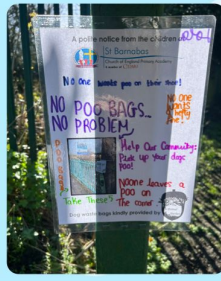 A polite notice from the children of
St Barnabas
Church of England Primary Academy
No one wants poo on their shoe!
NO POO BAGS...
NO PROBLEM
No one
wants
a hefty
fine!
POO BAGS
Help Our Community:
Pick up your dogs
poo!
Take These?
Noone leaves a
poo on
The
Dog waste bags kindly provided by